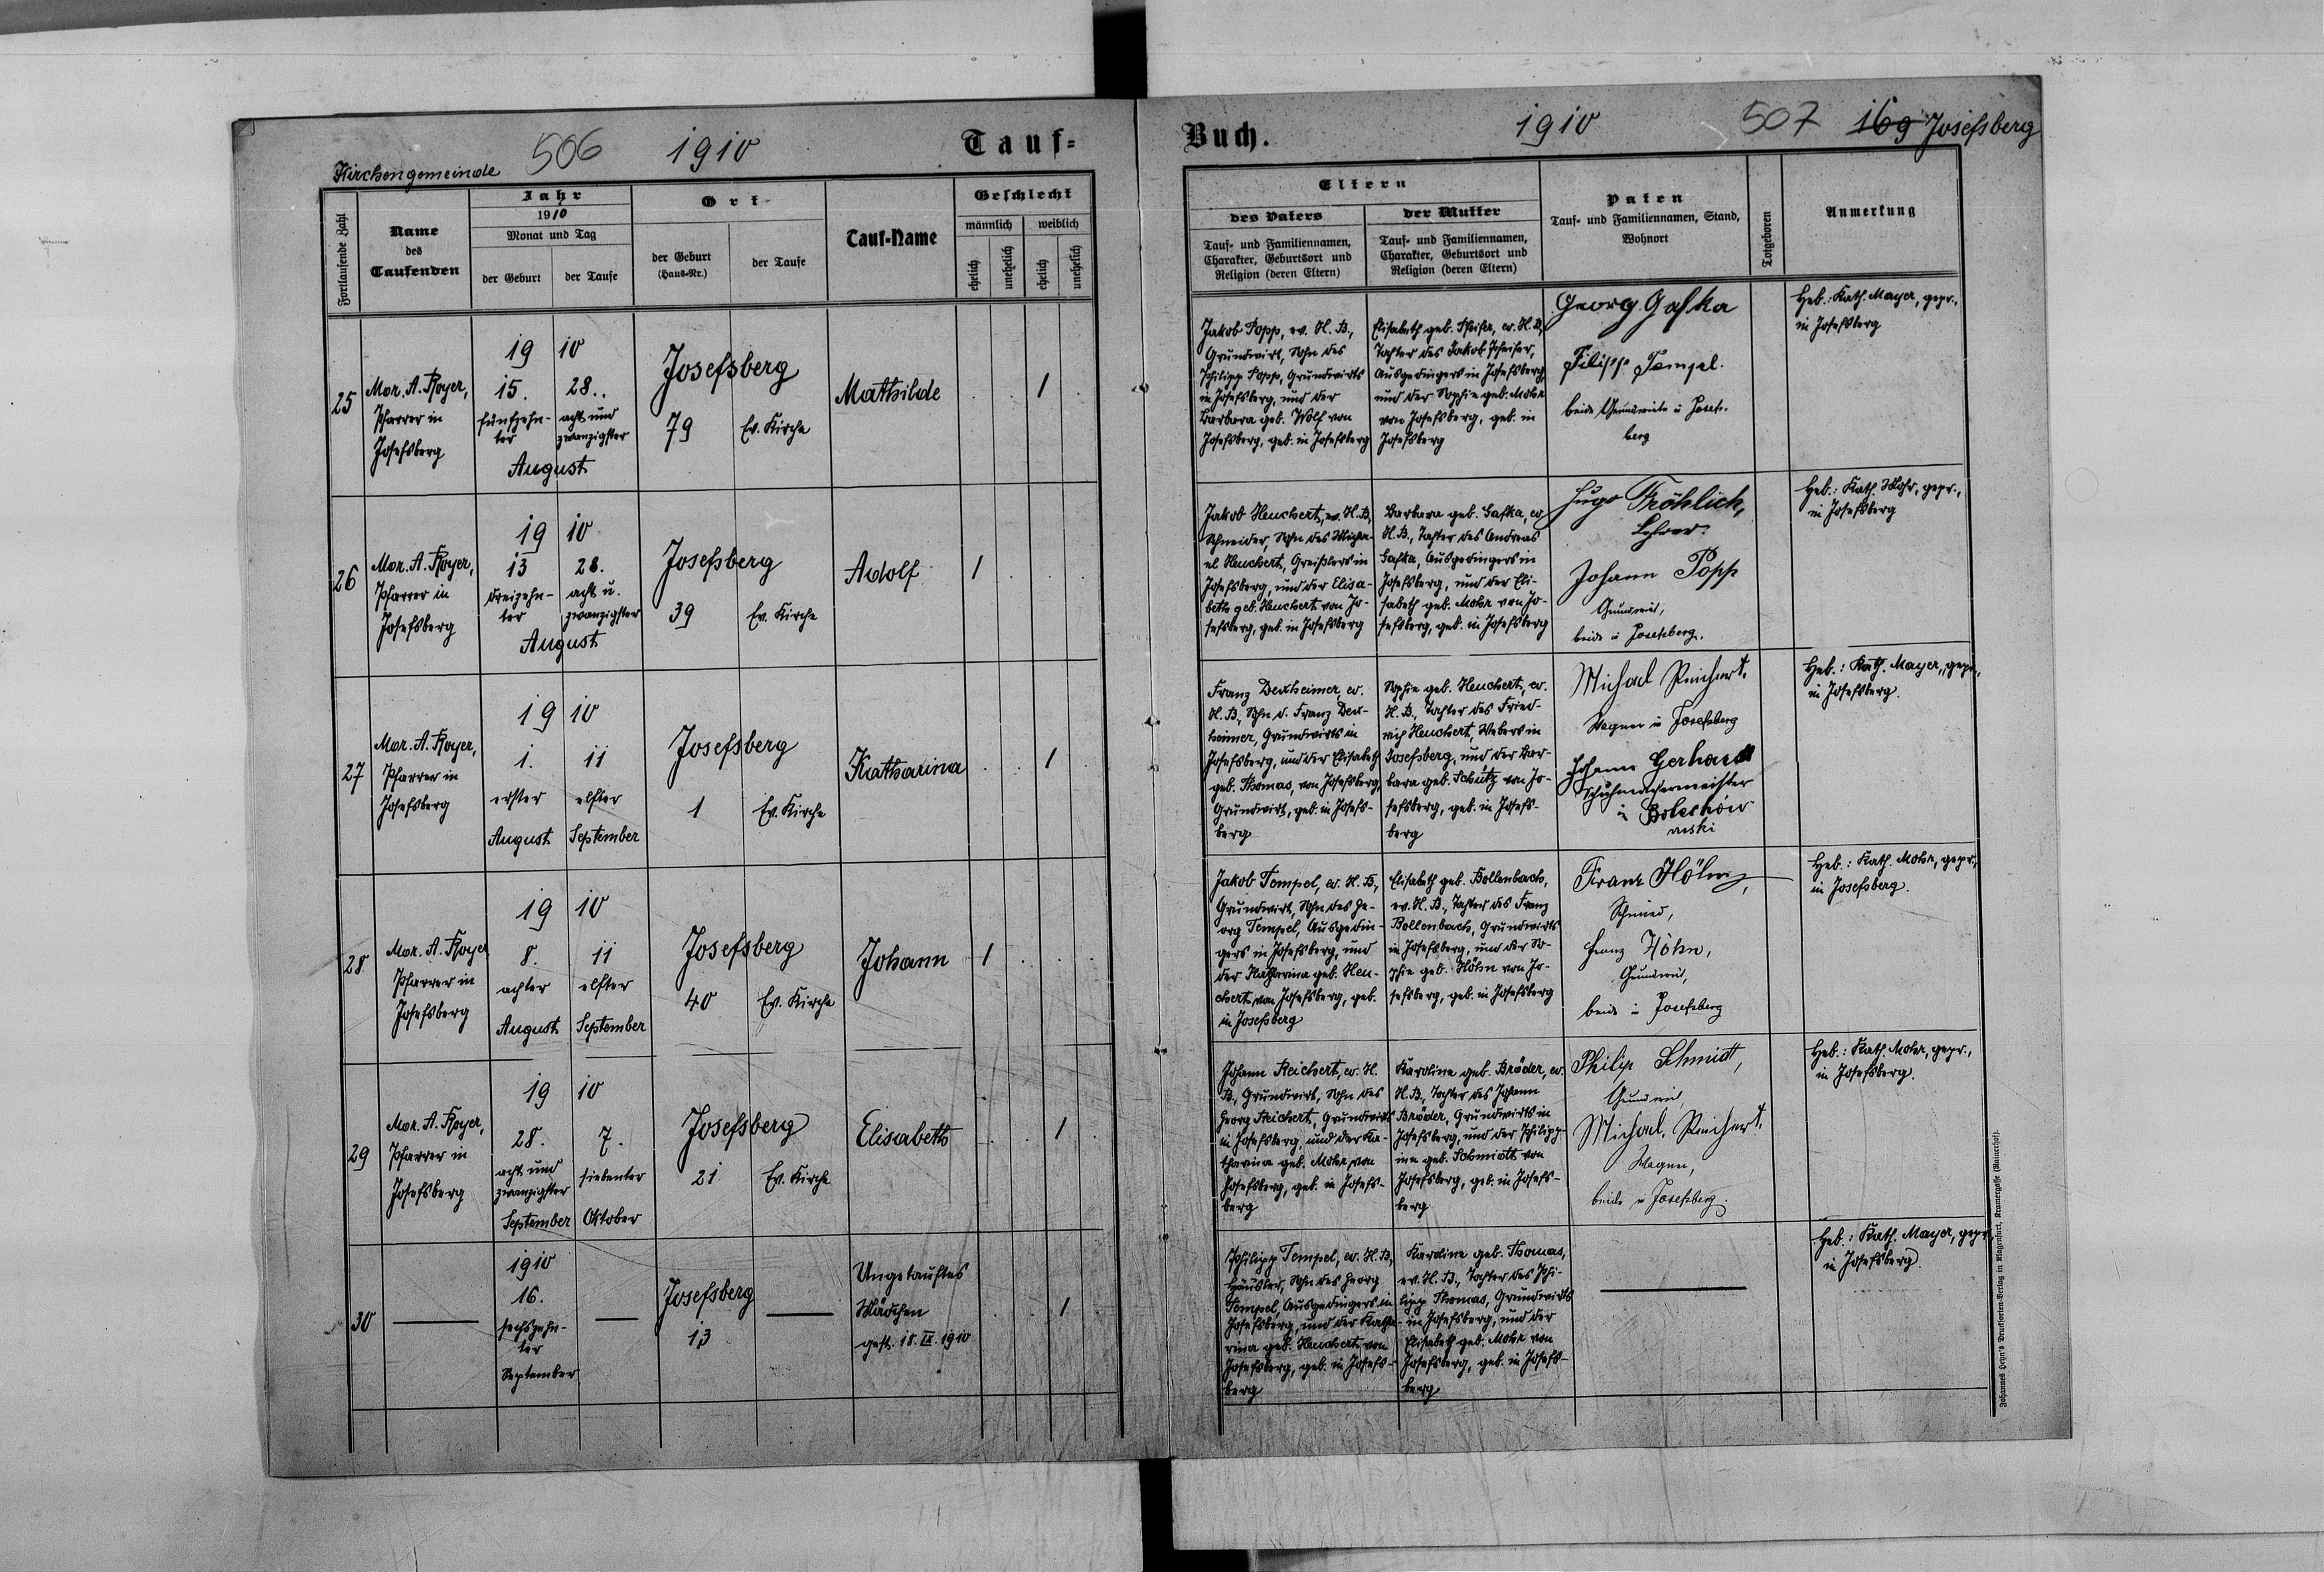 506 1910 Tauf-
Kirchengemeinde
Fortlaufende Zahl
Name
des
Taufenden
Jahr
1910
Monat und Tag
der Geburt
der Taufe
Ort
der Geburt
(Haus-Nr.)
der Taufe
Tauf-Name
Geschlecht
männlich weiblich
ehelich unehelich ehelich unehelich
25
Mor. A. Royer,
Pfarrer in
Josefsberg
19 10
15. 28.
fünfzehn- acht und
ter zwanzigster
August
Josefsberg
79 Ev. Kirche
Mathilde
1
26
Mor. A. Royer,
Pfarrer in
Josefsberg
19 10
13 28.
dreizehn- acht u.
ter zwanzigster
August
Josefsberg
39 Ev. Kirche
Adolf
1
27
Mor. A. Royer,
Pfarrer in
Josefsberg
19 10
1. 11
erster elfter
August September
Josefsberg
1 Ev. Kirche
Katharina
1
28
Mor. A. Royer
Pfarrer in
Josefsberg
19 10
8. 11
achter elfter
August September
Josefsberg
40 Ev. Kirche
Johann
1
29
Mor. A. Royer,
Pfarrer in
Josefsberg
19 10
28. 7.
acht und siebenter
zwanzigster
September Oktober
Josefsberg
21 Ev. Kirche
Elisabeth
1
30
1910
16.
sechszehn-
ter
September
Josefsberg
13
Ungetauftes
Mädchen
gest. 18. IX. 1910
1
Buch. 1910 507 169 Josefsberg
Eltern
des Vaters
Tauf- und Familiennamen,
Charakter, Geburtsort und
Religion (deren Eltern)
der Mutter
Tauf- und Familiennamen,
Charakter, Geburtsort und
Religion (deren Eltern)
Paten
Tauf- und Familiennamen, Stand,
Wohnort
Totgeboren
Anmerkung
Jakob Popp, ev. H. B.,
Grundwirt, Sohn des
Philipp Popp, Grundwirts
in Josefsberg, und der
Barbara geb. Wolf von
Josefsberg, geb. in Josefsberg
Elisabeth geb. Pfeifer, ev. H. B.,
Tochter des Jakob Pfeifer,
Ausgedingers in Josefsberg,
und der Sophie geb. Mohr
von Josefsberg, geb. in
Josefsberg
Georg Gafka
Filipp Tempel.
beide Grundwirte in Josefs-
berg
Heb.: Kath. Mayer, gepr.,
in Josefsberg
Jakob Heuchert, ev. H. B.,
Schneider, Sohn des Micha-
el Heuchert, Greißlers in
Josefsberg, und der Elisa-
beth geb. Heuchert von Jo-
sefsberg, geb. in Josefsberg
Barbara geb. Gafka, ev.
H. B., Tochter des Andreas
Gafka, Ausgedingers in
Josefsberg, und der Eli-
sabeth geb. Mohr von Jo-
sefsberg, geb. in Josefsberg
Hugo Fröhlich,
Lehrer.
Johann Popp
Grundwirt,
beide in Josefsberg.
Heb.: Kath. Mohr, gepr.,
in Josefsberg
Franz Dexheimer, ev.
H. B., Sohn d. Franz Dex-
heimer, Grundwirts in
Josefsberg, und der Elisabeth
geb. Thomas, von Josefsberg,
Grundwirt, geb. in Josefs-
berg
Sophie geb. Heuchert, ev.
H. B., Tochter des Fried-
rich Heuchert, Webers in
Josefsberg, und der Bar-
bara geb. Schütz von Jo-
sefsberg, geb. in Josefs-
berg
Michael Reichert.
Wagner in Josefsberg
Johann Gerhardt
Schuhmachermeister
in Bolechów
ruski
Heb.: Kath. Mayer, gepr.,
in Josefsberg.
Jakob Tempel, ev. H. B.,
Grundwirt, Sohn des Ge-
org Tempel, Ausgedin-
gers in Josefsberg, und
der Katharina geb. Heu-
chert von Josefsberg, geb.
in Josefsberg
Elisabeth geb. Bollenbach,
ev. H. B., Tochter des Franz
Bollenbach, Grundwirts
in Josefsberg, und der So-
phie geb. Höhn von Jo-
sefsberg, geb. in Josefsberg
Franz Höhn,
Schmied,
Franz Höhn,
Grundwirt,
beide in Josefsberg
Heb.: Kath. Mohr, gepr.,
in Josefsberg.
Johann Reichert, ev. H.
B., Grundwirt, Sohn des
Georg Reichert, Grundwirts
in Josefsberg, und der Ka-
tharina geb. Mohr von
Josefsberg, geb. in Josefs-
berg
Karoline geb. Bröder, ev.
H. B., Tochter des Johann
Bröder, Grundwirts in
Josefsberg, und der Philipp-
ine geb. Schmidt von
Josefsberg, geb. in Josefs-
berg
Philipp Schmidt,
Grundwirt
Michael Reichert.
Wagner,
beide in Josefsberg.
Heb.: Kath. Mohr, gepr.,
in Josefsberg.
Philipp Tempel, ev. H. B.,
Häusler, Sohn des Georg
Tempel, Ausgedingers in
Josefsberg, und der Katha-
rina geb. Heuchert von
Josefsberg, geb. in Josefs-
berg
Karoline geb. Thomas,
ev. H. B., Tochter des Phi-
lipp Thomas, Grundwirts
in Josefsberg, und der
Elisabeth geb. Mohr von
Josefsberg, geb. in Josefs-
berg
Heb.: Kath. Mayer, gepr.,
in Josefsberg.
Johannes Heyn's Drucksorten-Verlag in Klagenfurt, Kramergasse (Rainerhof).